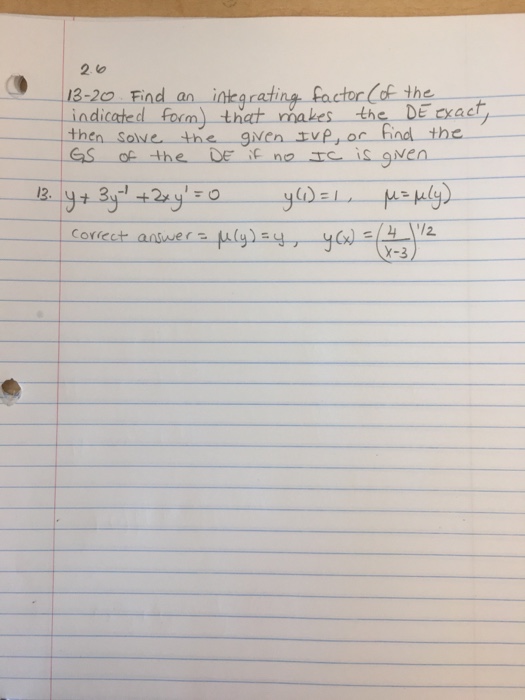 2.6
13-20 Find an integrating factor (of the
indicated form) that makes the DE exact,
then solve the given IVP, or find the
GS of the DE if no IC is given
13. y + 3y⁻¹ + 2xy' = 0 y(1) = 1, μ = μ(y)
correct answer = μ(y) = y, y(x) = (4/x-3)^1/2